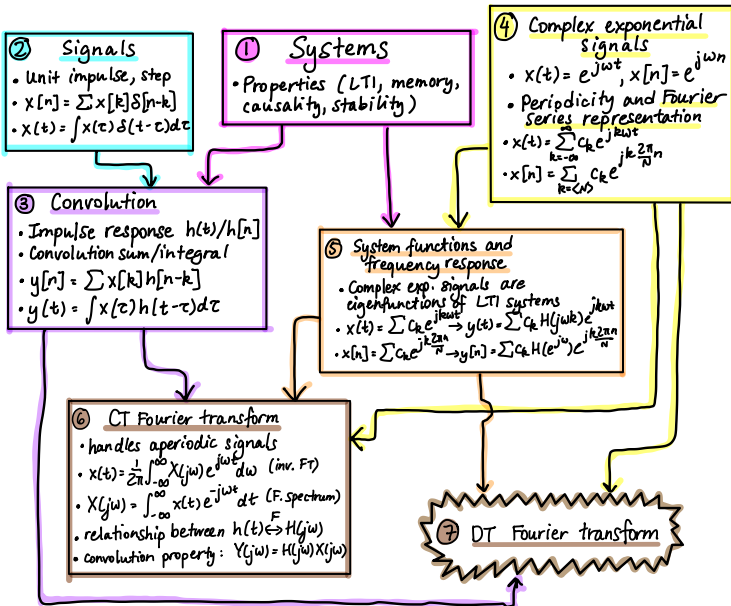 ② Signals
• Unit impulse, step
• x[n] = ∑ x[k] δ[n-k]
• x(t) = ∫ x(τ) δ(t-τ)dτ
① Systems
• Properties (LTI, memory,
causality, stability)
④ Complex exponential
signals
• x(t) = e^{jωt}, x[n] = e^{jωn}
• Periodicity and Fourier
Series representation
• x(t) = ∑_{k=-∞}^{∞} c_k e^{jkωt}
• x[n] = ∑_{k=<N>} c_k e^{jk 2π/N n}
③ Convolution
• Impulse response h(t)/h[n]
• Convolution sum/integral
• y[n] = ∑ x[k] h[n-k]
• y(t) = ∫ x(τ) h(t-τ)dτ
⑤ System functions and
frequency response
• Complex exp. signals are
eigenfunctions of LTI systems
• x(t) = ∑ c_k e^{jkωt} → y(t) = ∑ c_k H(jωk) e^{jkωt}
• x[n] = ∑ c_k e^{jk 2πn/N} → y[n] = ∑ c_k H(e^{jω}) e^{jk 2πn/N}
⑥ CT Fourier transform
• handles aperiodic signals
• x(t) = 1/2π ∫_{-∞}^{∞} X(jω) e^{jωt} dω (inv. FT)
• X(jω) = ∫_{-∞}^{∞} x(t) e^{-jωt} dt (F. spectrum)
• relationship between h(t) F↔ H(jω)
• convolution property: Y(jω) = H(jω)X(jω)
⑦ DT Fourier transform